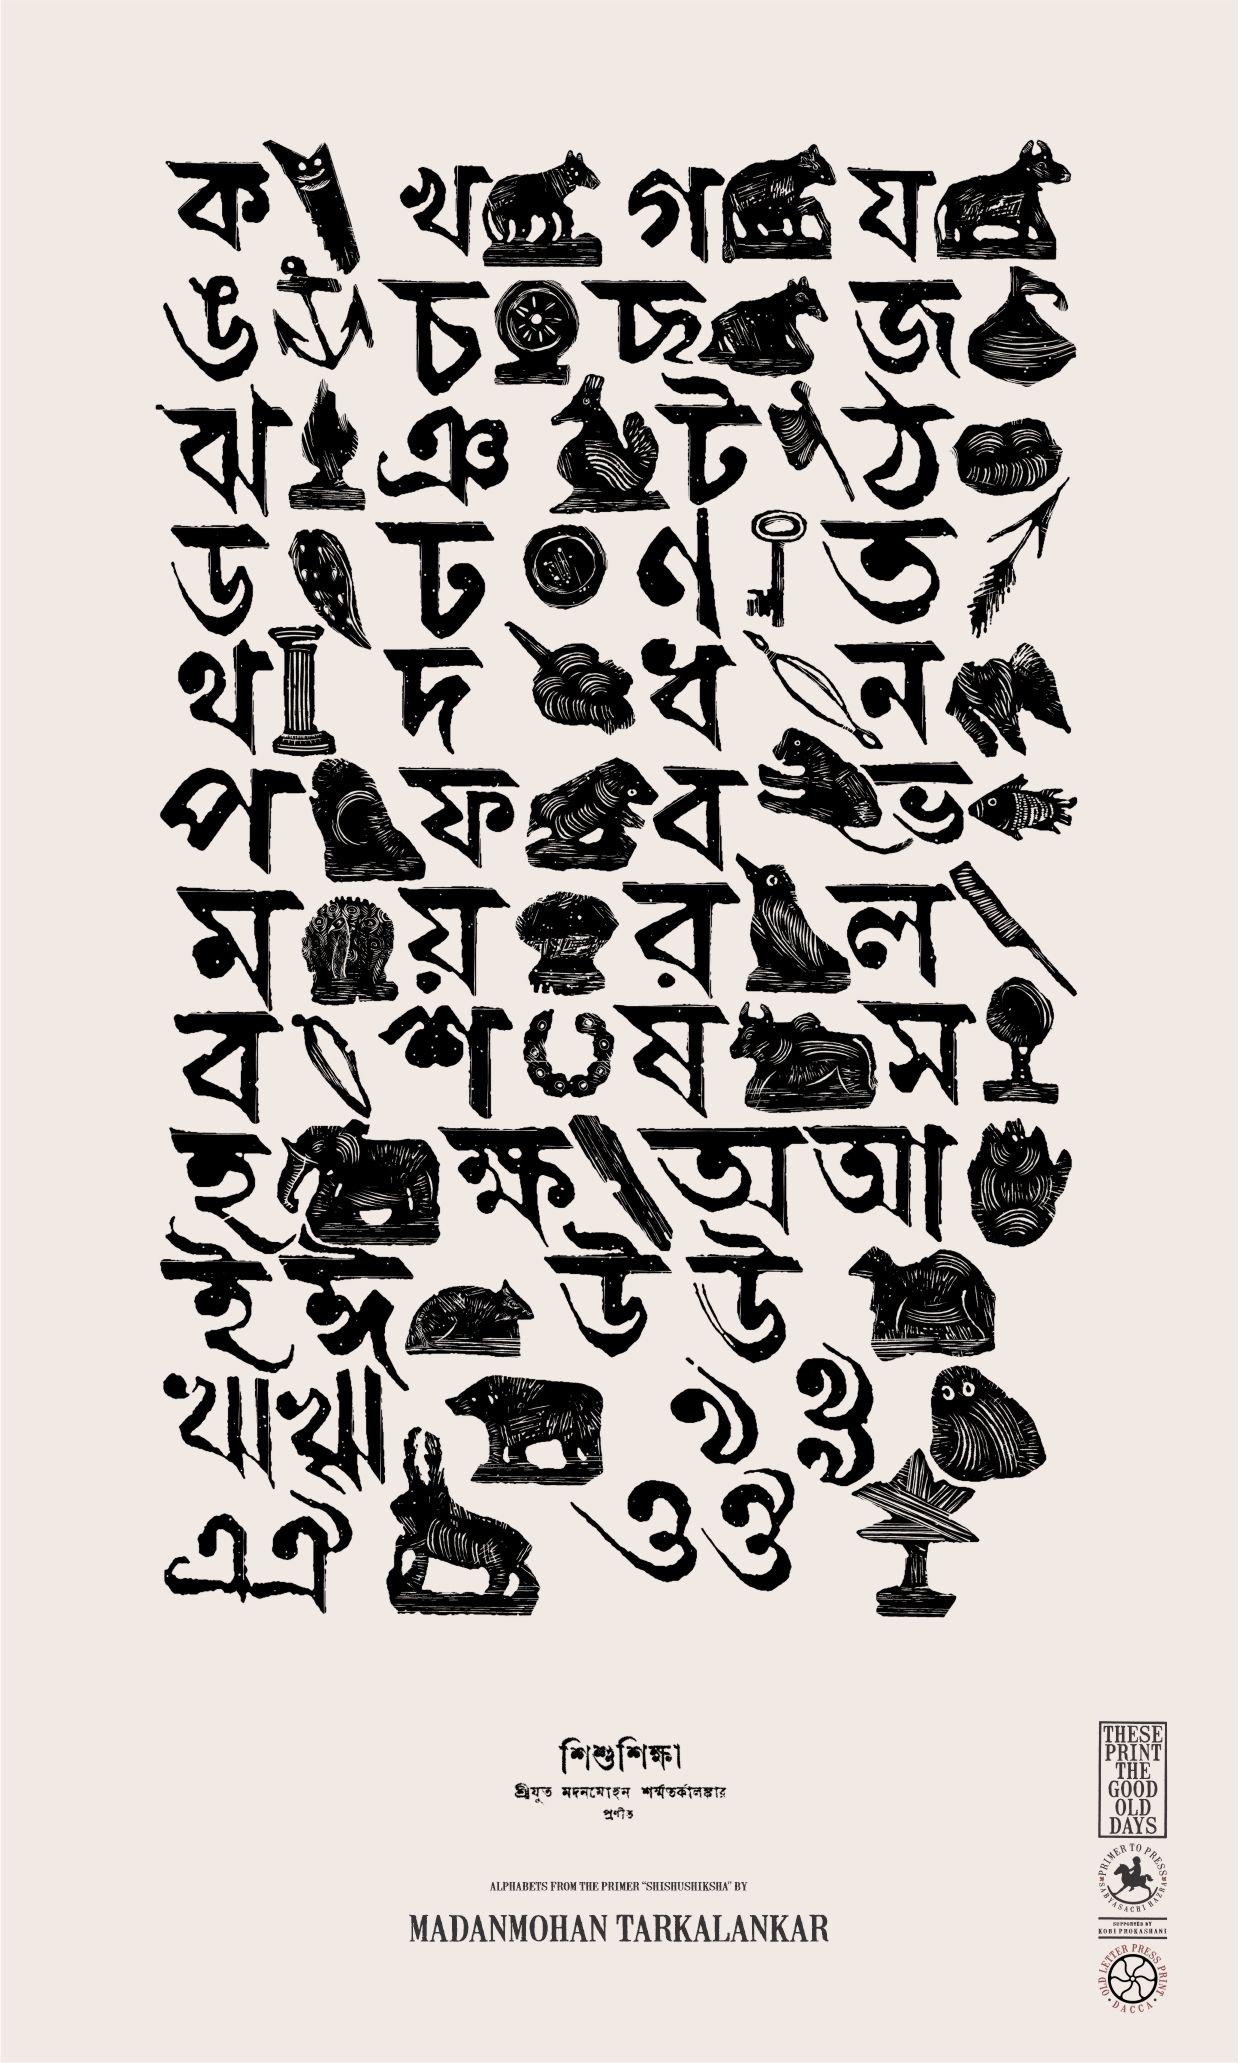 ক খ গ ঘ
ঙ চ ছ জ
ঝ ঞ ট ঠ
ড ঢ ণ ত
থ দ ধ ন
প ফ ব ভ
ম য় র ল
ব শ ষ স
হ ক্ষ অ আ
ই ঈ উ ঊ
ঋ ৠ ঌ ৡ
এ ঐ ও ঔ
শিশুশিক্ষা
শ্রীযুত মদনমোহন শর্ম্মতর্কালঙ্কার
প্রণীত
ALPHABETS FROM THE PRIMER "SHISHUSHIKSHA" BY
MADANMOHAN TARKALANKAR
THESE
PRINT
THE
GOOD
OLD
DAYS
PRIMER TO PRESS
SABYASACHI HAZRA
SUPPORTED BY
KOBI PROKASHANI
OLD LETTER PRESS PRINT
DACCA